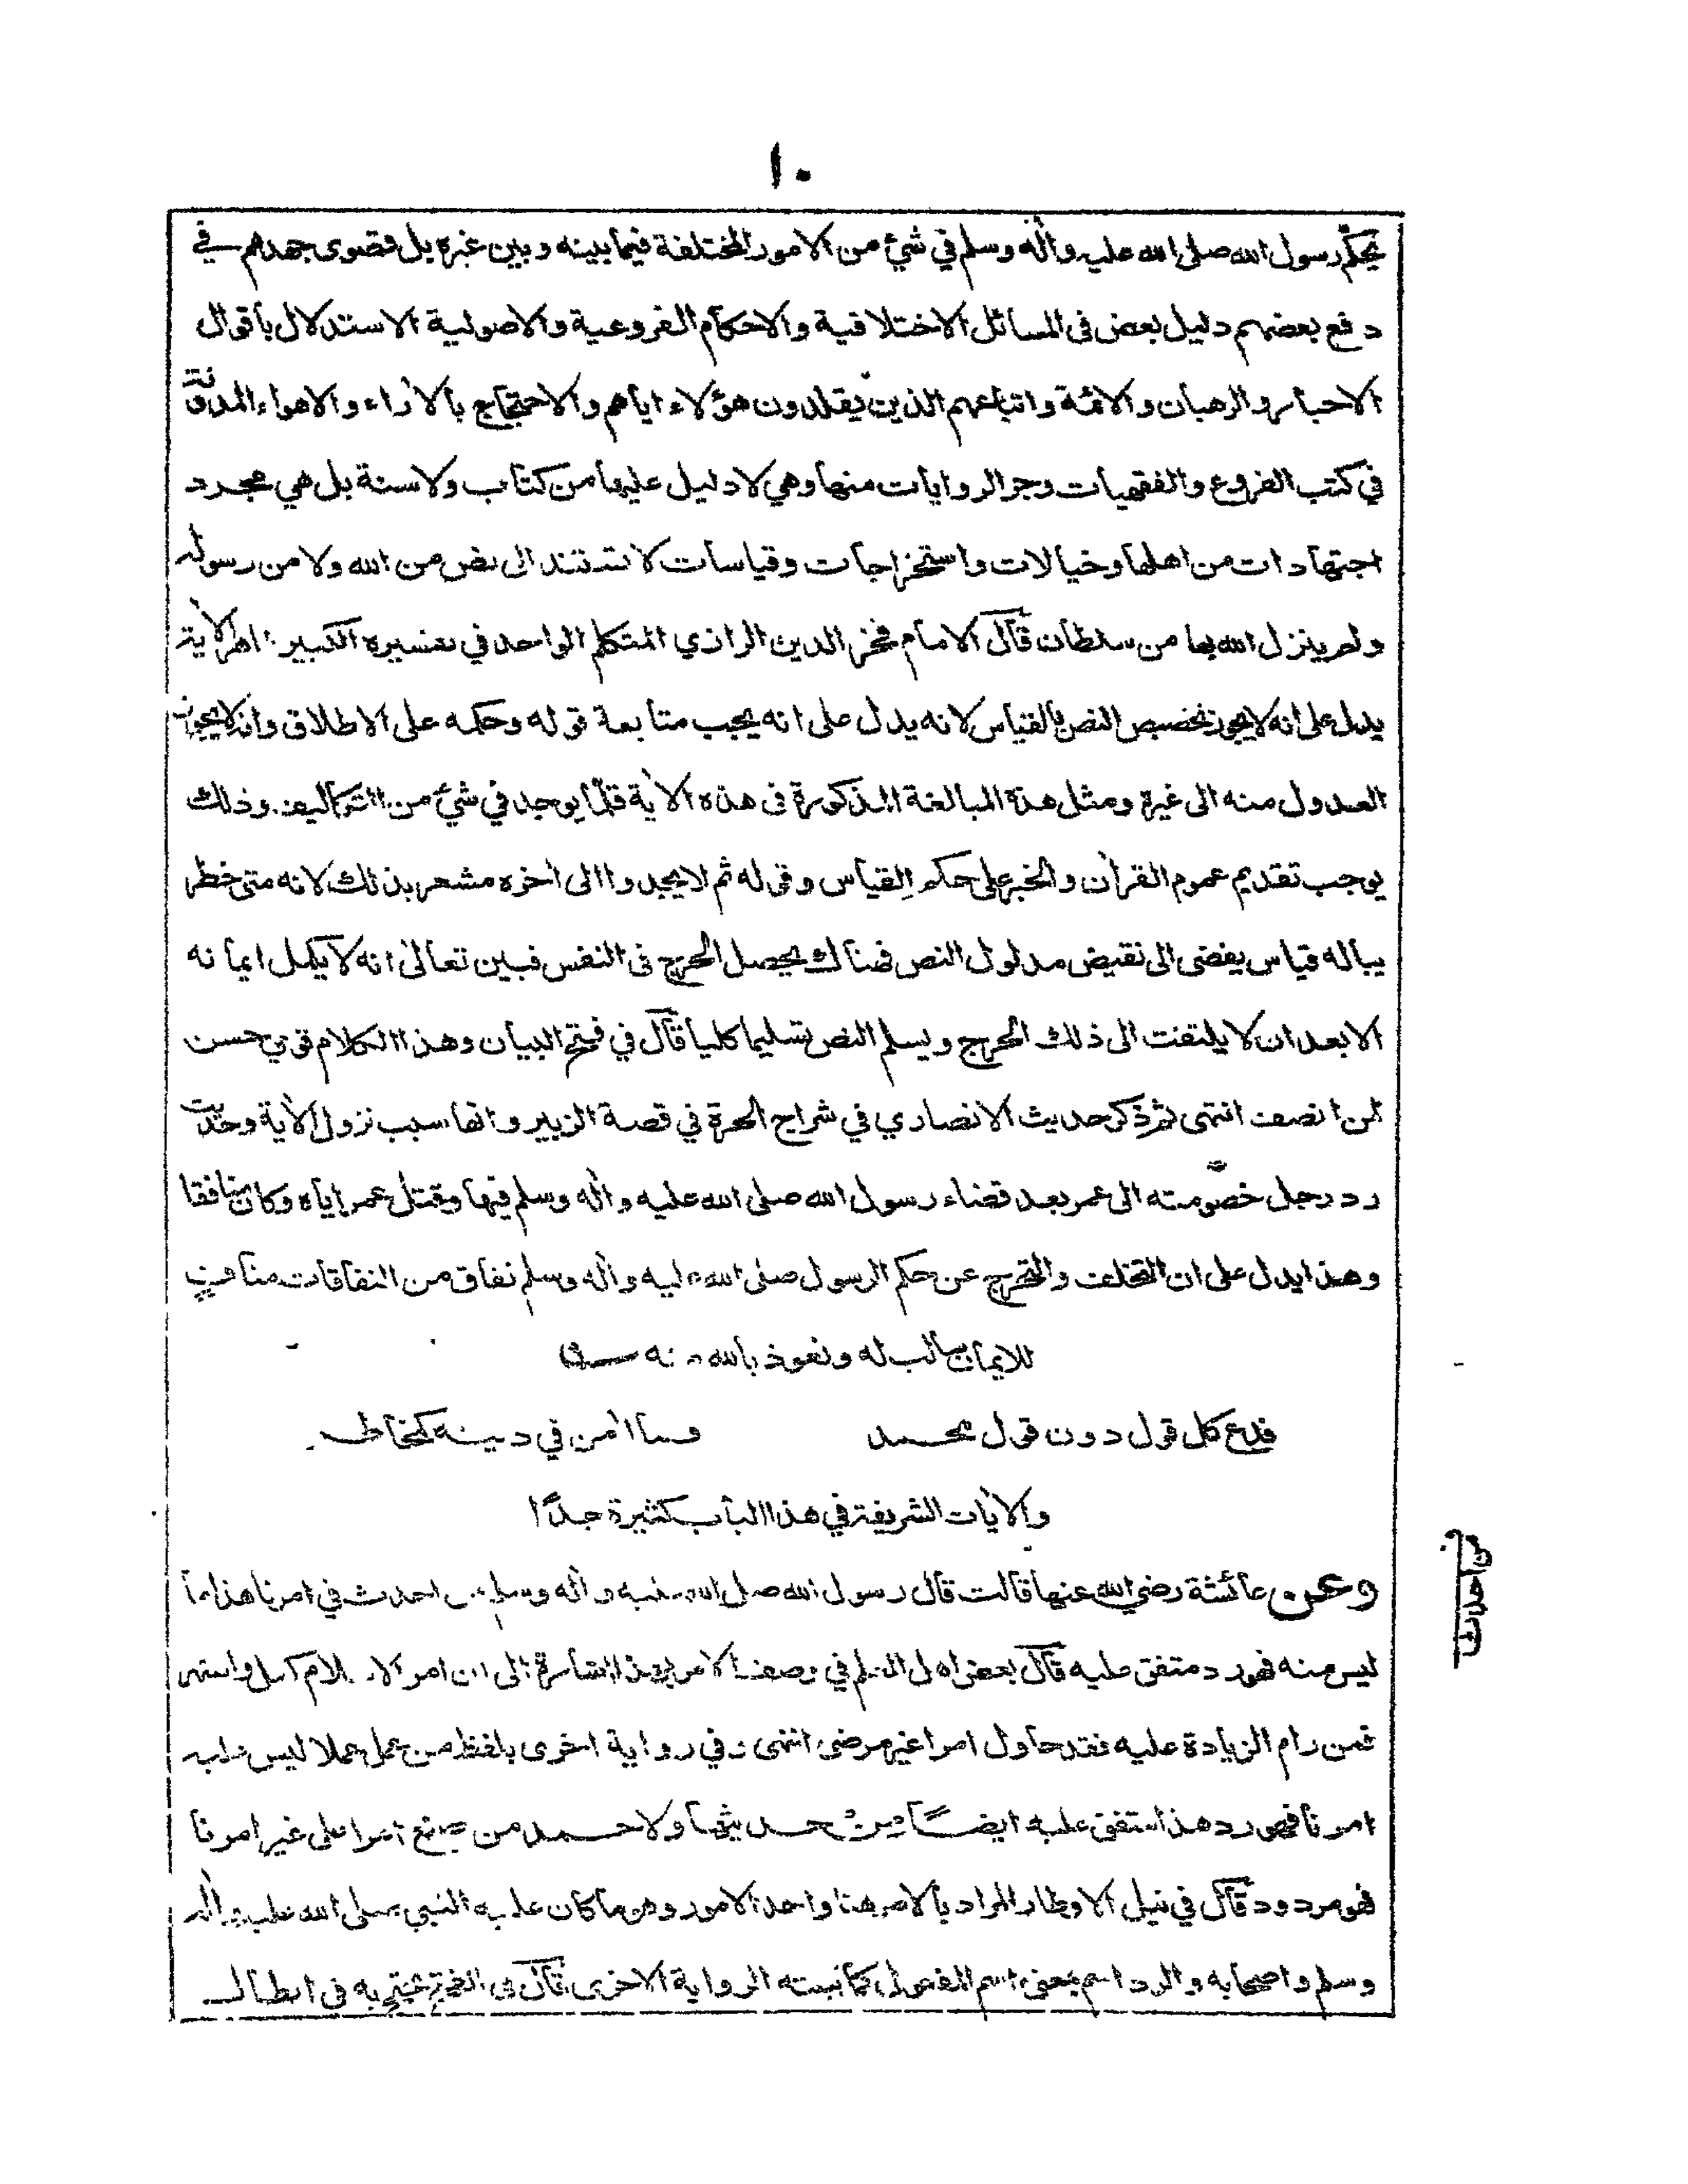 ١٠
يحكّم رسول الله صلى الله عليه واٰله وسلم في شئ من الامور المختلفة فيما بينه وبين غيره بل قصوى جهدهم في
دفع بعضهم دليل بعض فى المسائل الاختلافية والاحكام الفروعية والاصولية الاستدلال باقوال
الاحبار والرهبان والائمة واتباعهم الذين يقلدون هؤلاء اياهم والاحتجاج بالاٰراء والاهواء المدونة
في كتب الفروع والفقهيات وجر الروايات منها وهي لا دليل عليها من كتاب ولا سنة بل هي مجرد
اجتهادات من اهلها وخيالات واستخراجات وقياسات لا تستند الى نص من الله ولا من رسوله
ولم ينزل الله بها من سلطان قال الامام فخر الدين الرازي المتكلم الواحد في تفسيره الكبير ظاهر الاٰية
يدل على انه لا يجوز تخصيص النص بالقياس لانه يدل على انه يجب متابعة قوله وحكمه على الاطلاق وانه لا يجوز
العدول منه الى غيره ومثل هذة المبالغة المذكورة فى هذه الاٰية قلّما يوجد في شئ من التكاليف وذلك
يوجب تقديم عموم القراٰن والخبر على حكم القياس وقوله ثم لا يجدوا الى اٰخره مشعر بذلك لانه متى خطر
بباله قياس يفضى الى نقيض مدلول النص فهناك يحصل الحرج فى النفس فبين تعالى انه لا يكمل ايمانه
الا بعد ان لا يلتفت الى ذلك الحرج ويسلم النص تسليما كليا قال في فتح البيان وهذا الكلام قوي حسن
لمن انصف انتهى ثم ذكر حديث الانصاري في شراج الحرة في قصة الزبير وانها سبب نزول الاٰية وحديث
رد رجل خصومته الى عمر بعد قضاء رسول الله صلى الله عليه واٰله وسلم فيها وقتل عمر اياه وكان منافقا
وهذا يدل على ان التخلف والتحرج عن حكم الرسول صلى الله عليه واٰله وسلم نفاق من النفاقات منافٍ
للايمان سالب له ونعوذ بالله منه
فدع كل قول دون قول محمد فما اٰمن في دينه كمخاطر
والاٰيات الشريفة في هذا الباب كثيرة جدًا
وعن عائشة رضي الله عنها قالت قال رسول الله صلى الله عليه واٰله وسلم من احدث في امرنا هذا ما
ليس منه فهو رد متفق عليه قال بعض اهل العلم في وصف الامر بهذا اشارة الى ان امر الاسلام كمل واشتهر
فمن رام الزيادة عليه فقد حاول امرا غير مرضى انتهى وفي رواية اخرى بلفظ من عمل عملا ليس عليه
امرنا فهو رد هذا متفق عليه ايضًا من حديثها ولاحمد من صنع امرا على غير امرنا
فهو مردود قال في نيل الاوطار المراد بالامر هنا واحد الامور وهو ما كان عليه النبي صلى الله عليه واٰله
وسلم واصحابه والرد اسم بمعنى اسم المفعول كما تبينه الرواية الاخرى قال فى الفتح يحتج به في ابطال